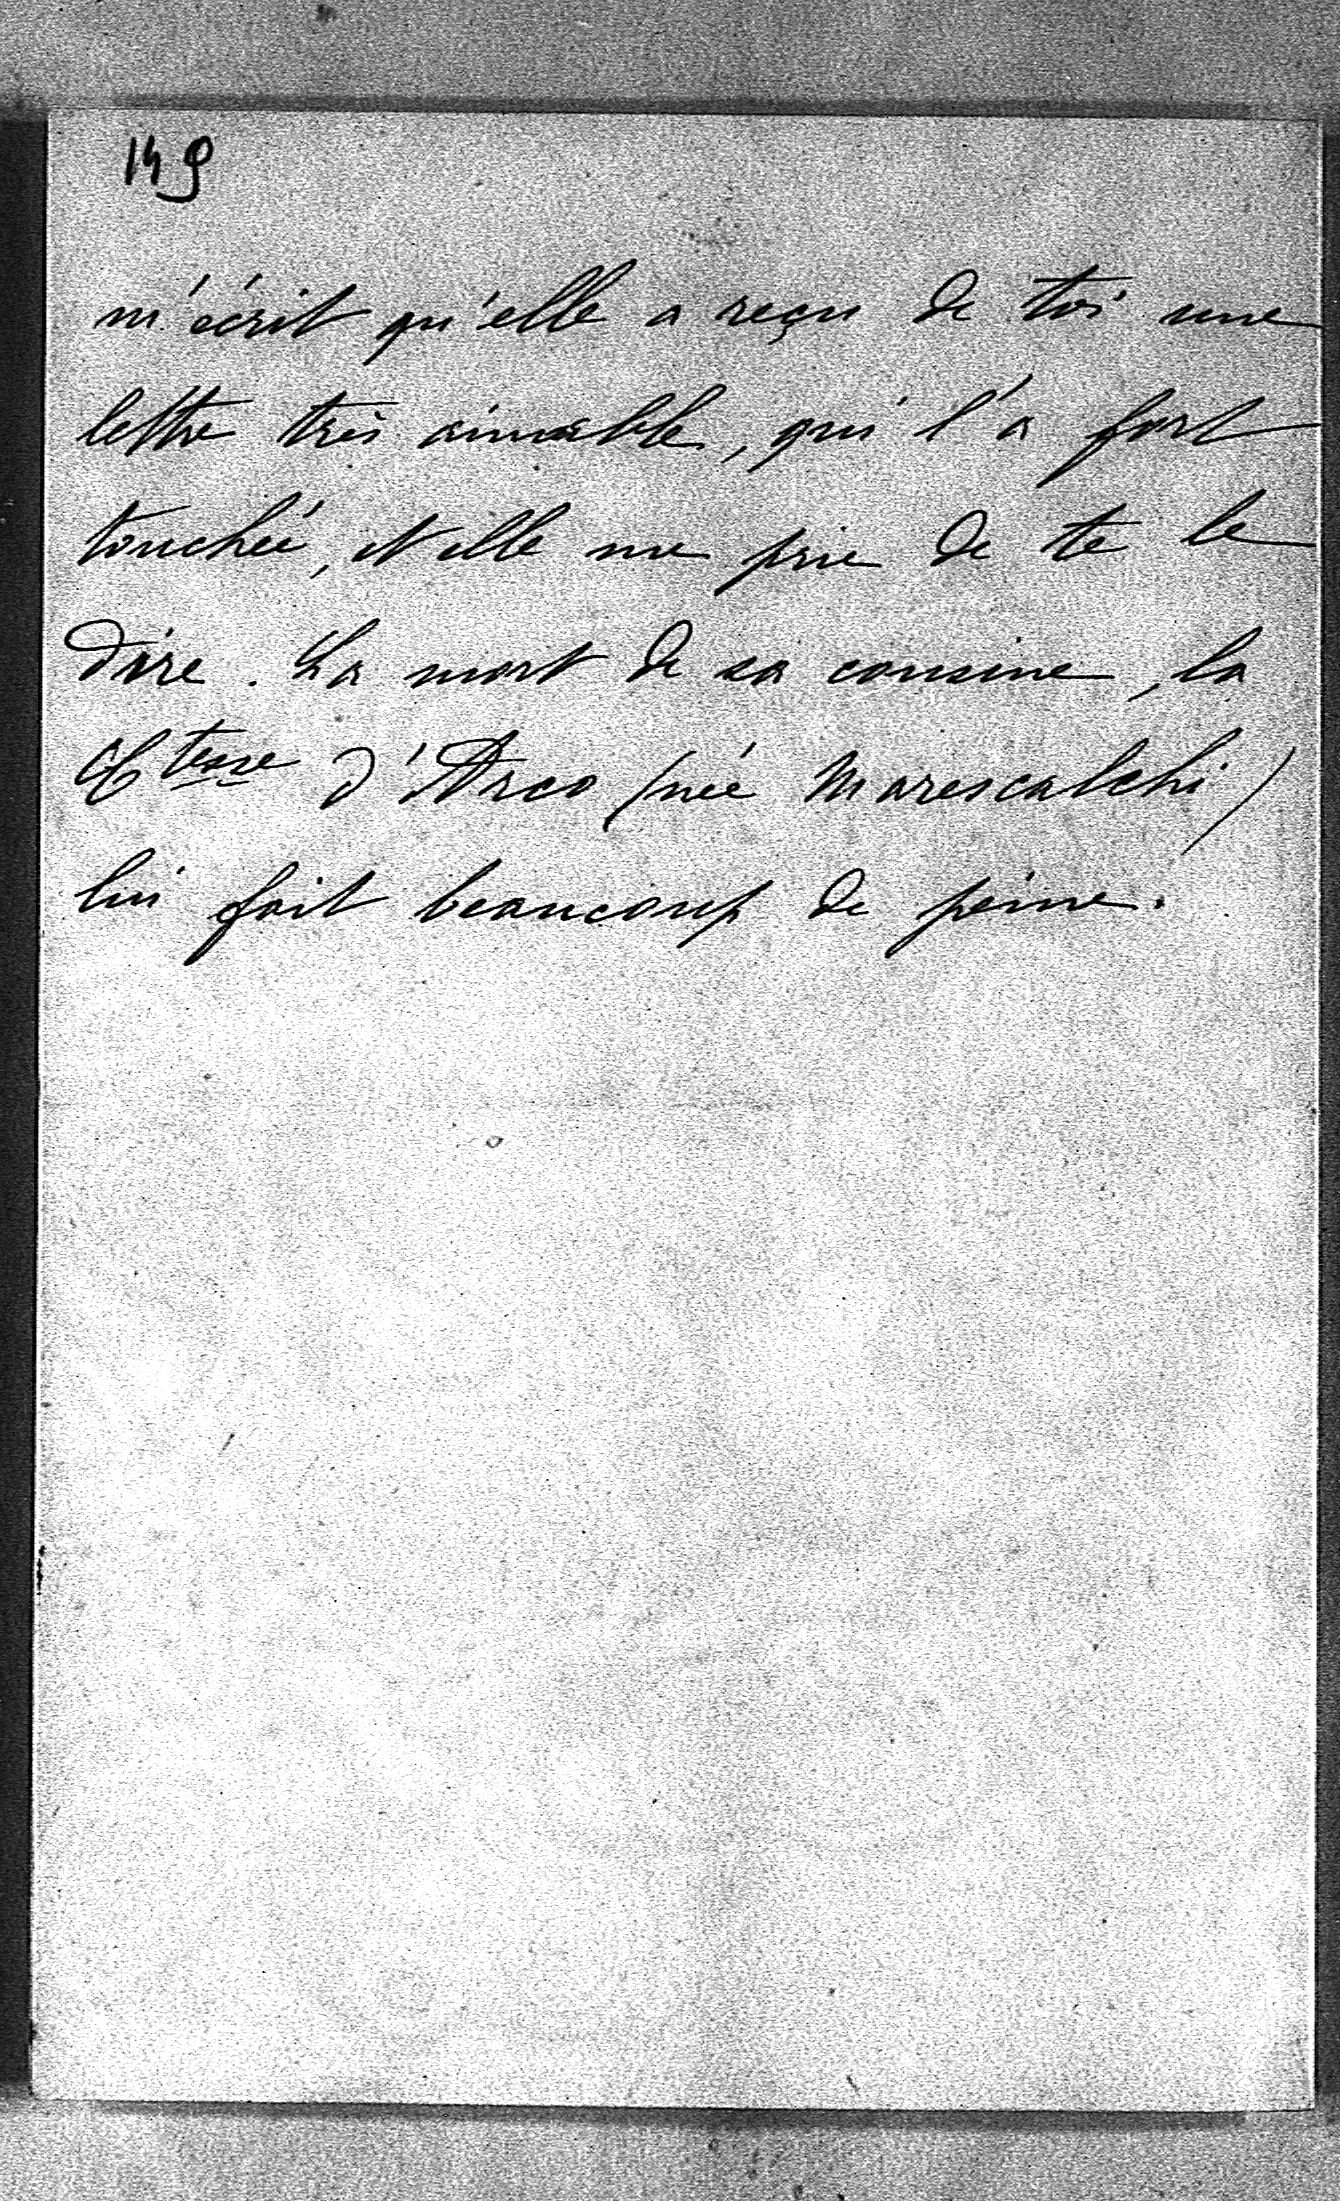 149
m'écrit qu'elle a reçu de toi une
lettre très aimable, qui l'a fort
touchée, et elle me prie de te le
dire. La mort de sa cousine, la
Ctesse d'Arco (née Marescalchi)
lui fait beaucoup de peine.